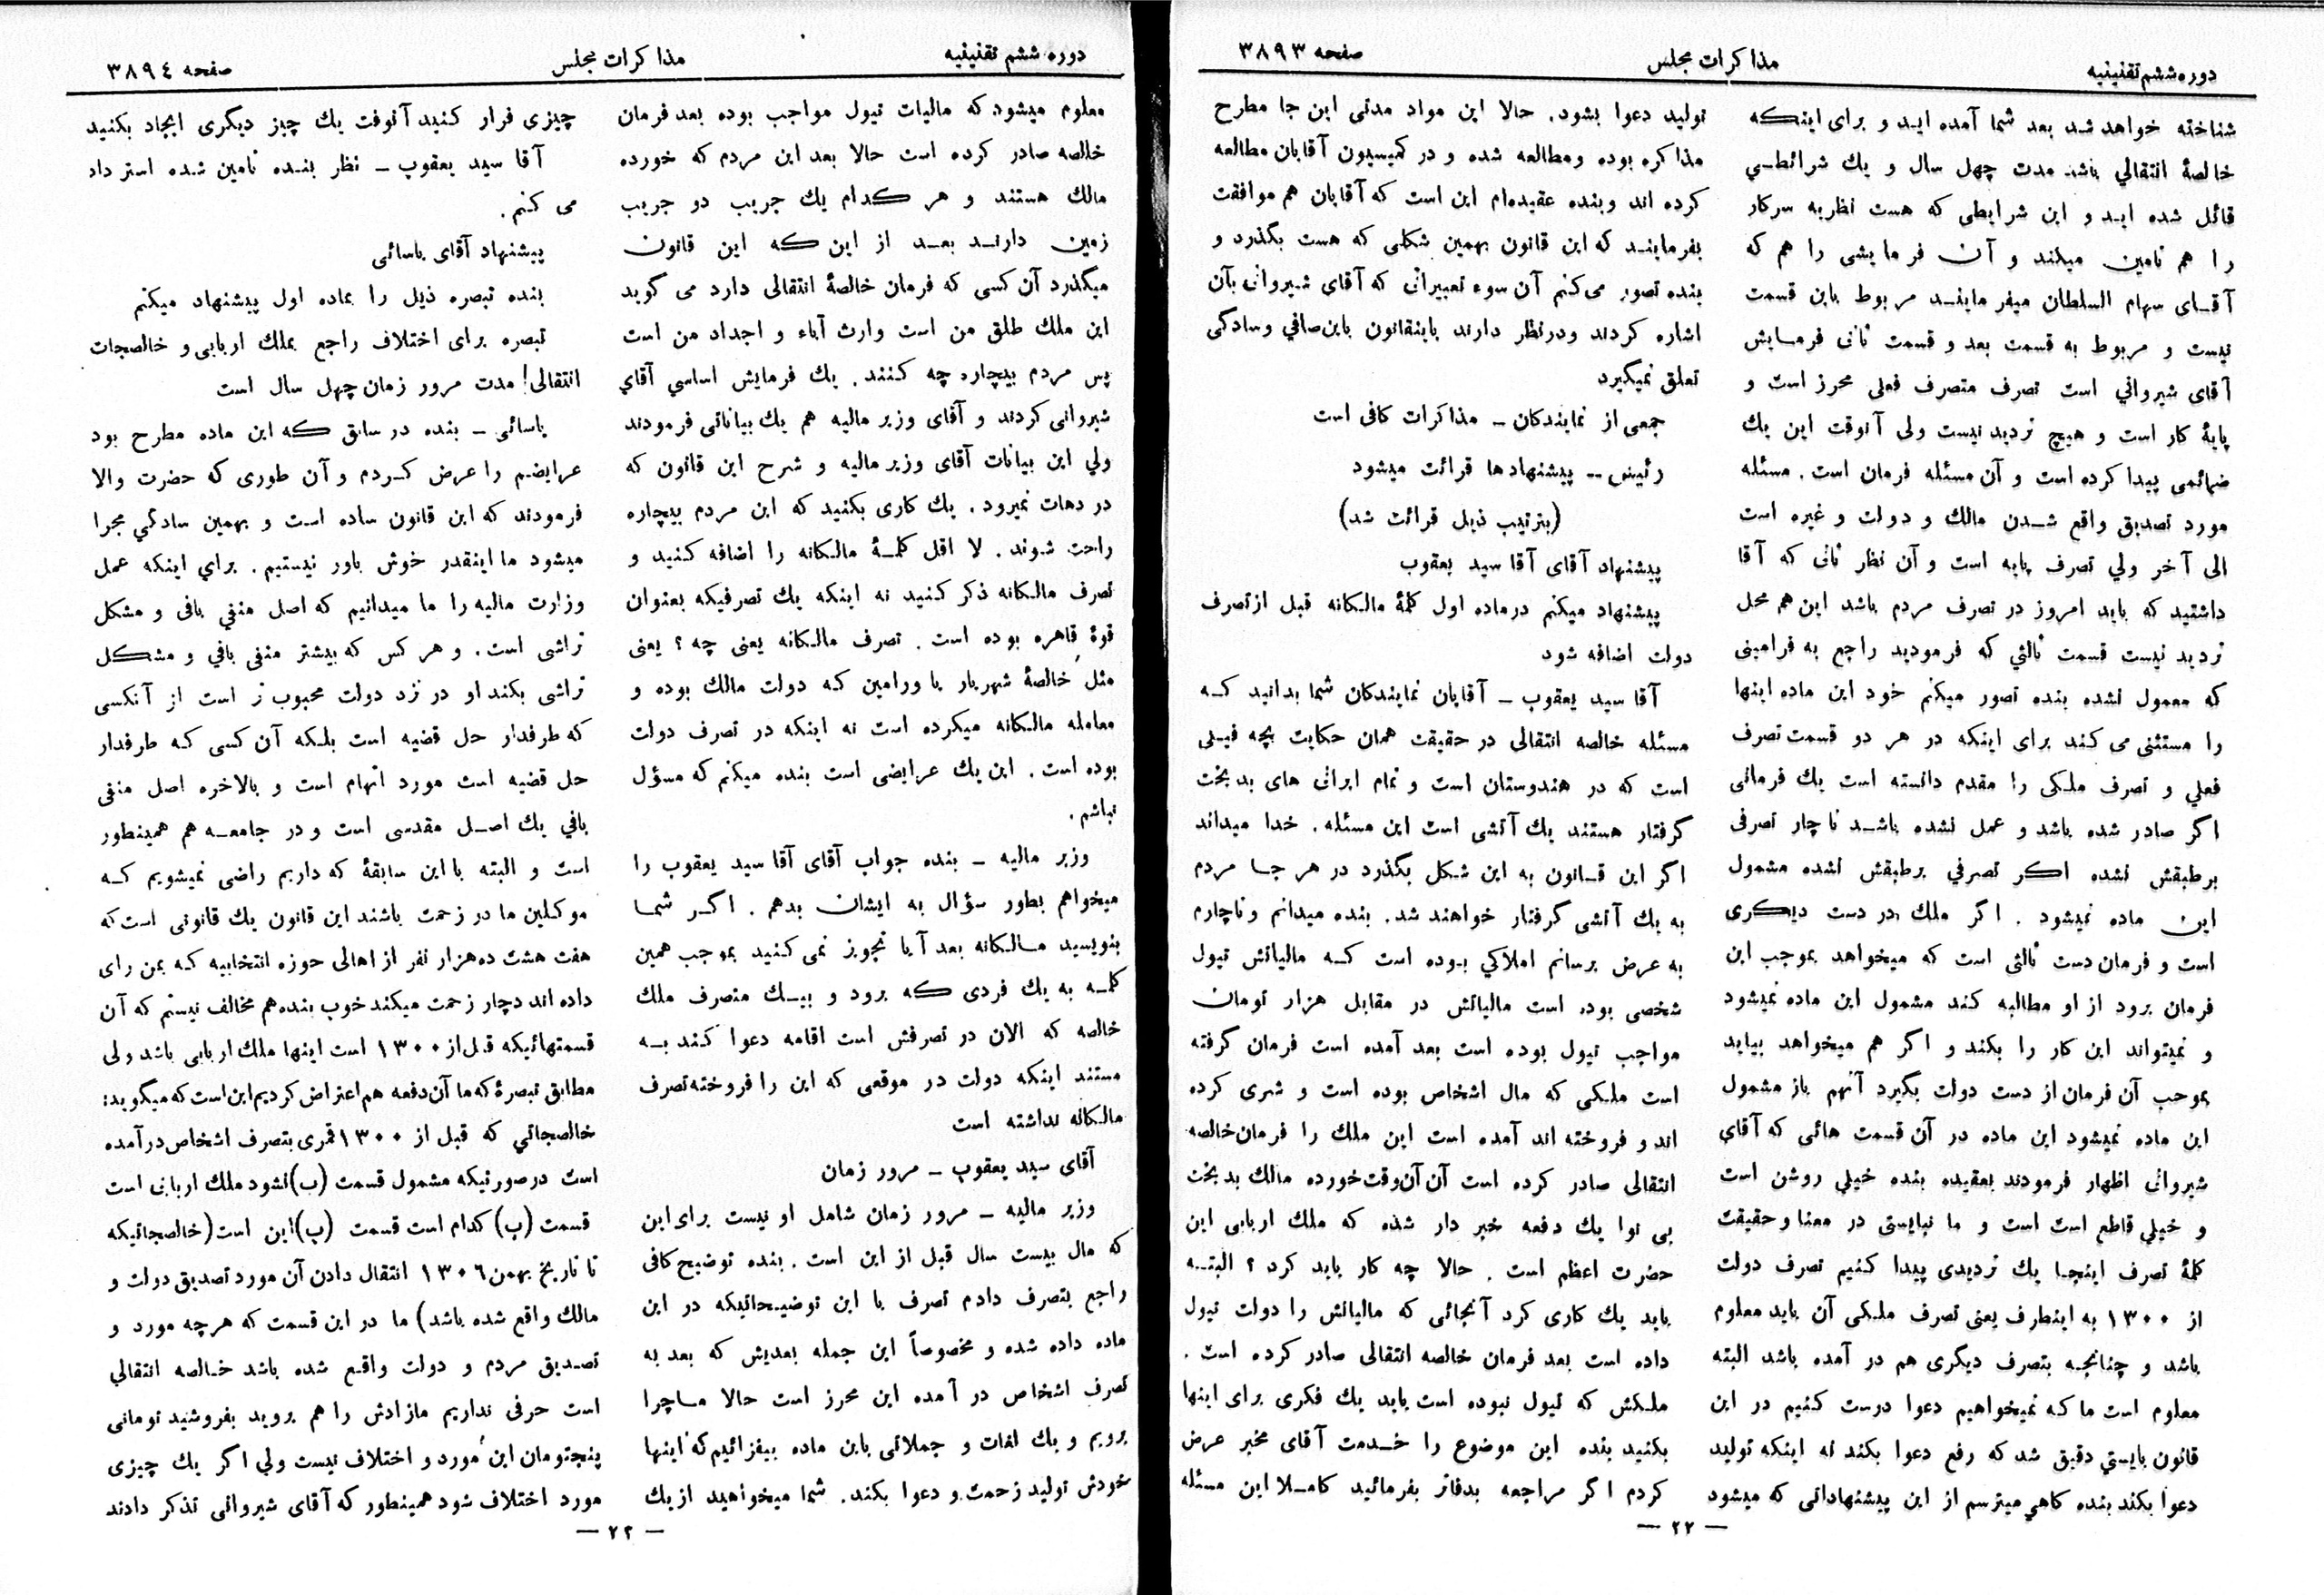 دوره ششم تقنینیه
مذاکرات مجلس
صفحه ۳۸۹۳
شناخته خواهد شد بعد شما آمده اید و برای اینکه
خالصهٔ انتقالی باشد مدت چهل سال و یك شرائطی
قائل شده اید و این شرایطی که هست نظریه سرکار
را هم تامین میکند و آن فرمایشی را هم که
آقای سهام السلطان میفرمایند مربوط باین قسمت
نیست و مربوط به قسمت بعد و قسمت ثانی فرمایش
آقای شیروانی است تصرف متصرف فعلی محرز است و
پایهٔ کار است و هیچ تردید نیست ولی آنوقت این یك
ضمائمی پیدا کرده است و آن مسئله فرمان است . مسئله
مورد تصدیق واقع شدن مالك و دولت و غیره است
الی آخر ولی تصرف پایه است و آن نظر ثانی که آقا
داشتید که باید امروز در تصرف مردم باشد این هم محل
تردید نیست قسمت ثالثی که فرمودید راجع به فرامینی
که معمول نشده بنده تصور میکنم خود این ماده اینها
را مستثنی می کند برای اینکه در هر دو قسمت تصرف
فعلی و تصرف ملکی را مقدم دانسته است یك فرمانی
اگر صادر شده باشد و عمل نشده باشد ناچار تصرفی
برطبقش نشده اگر تصرفی برطبقش نشده مشمول
این ماده نمیشود . اگر ملك در دست دیگری
است و فرمان دست ثالثی است که میخواهد بموجب این
فرمان برود از او مطالبه کند مشمول این ماده نمیشود
و نمیتواند این کار را بکند و اگر هم میخواهد بیاید
بموجب آن فرمان از دست دولت بگیرد آنهم باز مشمول
این ماده نمیشود این ماده در آن قسمت هائی که آقای
شیروانی اظهار فرمودند بعقیده بنده خیلی روشن است
و خیلی قاطع است است و ما نبایستی در معنا و حقیقت
کلمهٔ تصرف اینجا یك تردیدی پیدا کنیم تصرف دولت
از ۱۳۰۰ به اینطرف یعنی تصرف ملکی آن باید معلوم
باشد و چنانچه بتصرف دیگری هم در آمده باشد البته
معلوم است ما که نمیخواهیم دعوا درست کنیم در این
قانون بایستی دقیق شد که رفع دعوا بکند نه اینکه تولید
دعوا بکند بنده کاهی میترسم از این پیشنهاداتی که میشود
تولید دعوا بشود. حالا این مواد مدتی این جا مطرح
مذاکره بوده و مطالعه شده و در کمیسیون آقایان مطالعه
کرده اند و بنده عقیده‌ام این است که آقایان هم موافقت
بفرمایند که این قانون بهمین شکلی که هست بگذرد و
بنده تصور می‌کنم آن سوء تعبیراتی که آقای شیروانی بآن
اشاره کردند و درنظر دارند باینقانون باین صافی و سادگی
تعلق نمیگیرد
جمعی از نمایندکان ــ مذاکرات کافی است
رئیس ــ پیشنهادها قرائت میشود
(بترتیب ذیل قرائت شد)
پیشنهاد آقای آقا سید یعقوب
پیشنهاد میکنم درماده اول کلمهٔ مالکانه قبل از تصرف
دولت اضافه شود
آقا سید یعقوب ــ آقایان نمایندکان شما بدانید که
مسئله خالصه انتقالی در حقیقت همان حکایت بچه فیلی
است که در هندوستان است و تمام ایرانی های بدبخت
گرفتار هستند یك آتشی است این مسئله . خدا میداند
اگر این قانون به این شکل بگذرد در هر جا مردم
به یك آتشی گرفتار خواهند شد. بنده میدانم و ناچارم
به عرض برسانم املاکی بوده است که مالیاتش تیول
شخصی بوده است مالیاتش در مقابل هزار تومان
مواجب تیول بوده است بعد آمده است فرمان گرفته
است ملکی که مال اشخاص بوده است و شری کرده
اند و فروخته اند آمده است این ملك را فرمان خالصه
انتقالی صادر کرده است آن آن وقت خورده مالك بدبخت
بی نوا یك دفعه خبر دار شده که ملك اربابی این
حضرت اعظم است . حالا چه کار باید کرد ؟ البته
باید یك کاری کرد آنجائی که مالیاتش را دولت تیول
داده است بعد فرمان خالصه انتقالی صادر کرده است .
ملکش که تیول نبوده است باید یك فکری برای اینها
بکنید بنده این موضوع را خدمت آقای مخبر عرض
کردم اگر مراجعه بدفاتر بفرمائید کاملا این مسئله
— ۲۲ —
دوره ششم تقنینیه
مذاکرات مجلس
صفحه ۳۸۹٤
معلوم میشود که مالیات تیول مواجب بوده بعد فرمان
خالصه صادر کرده است حالا بعد این مردم که خورده
مالك هستند و هر کدام یك جریب دو جریب
زمین دارند بعد از این که این قانون
میگذرد آن کسی که فرمان خالصهٔ انتقالی دارد می گوید
این ملك طلق من است وارث آباء و اجداد من است
پس مردم بیچاره چه کنند . یك فرمایش اساسی آقای
شیروانی کردند و آقای وزیر مالیه هم یك بیاناتی فرمودند
ولی این بیانات آقای وزیر مالیه و شرح این قانون که
در دهات نمیرود . یك کاری بکنید که این مردم بیچاره
راحت شوند . لا اقل کلمهٔ مالکانه را اضافه کنید و
تصرف مالکانه ذکر کنید نه اینکه یك تصرفیکه بعنوان
قوهٔ قاهره بوده است . تصرف مالکانه یعنی چه ؟ یعنی
مثل خالصهٔ شهریار یا ورامین که دولت مالك بوده و
معامله مالکانه میکرده است نه اینکه در تصرف دولت
بوده است . این یك عرایضی است بنده میکنم که مسؤل
نباشم .
وزیر مالیه ــ بنده جواب آقای آقا سید یعقوب را
میخواهم بطور سؤال به ایشان بدهم . اگر شما
بنویسید مالکانه بعد آیا تجویز نمی کنید بموجب همین
کلمه به یك فردی که برود و بیك متصرف ملك
خالصه که الان در تصرفش است اقامه دعوا کند به
مستند اینکه دولت در موقعی که این را فروخته تصرف
مالکانه نداشته است
آقای سید یعقوب ــ مرور زمان
وزیر مالیه ــ مرور زمان شامل او نیست برای این
که مال بیست سال قبل از این است . بنده توضیح کافی
راجع بتصرف دادم تصرف با این توضیحاتیکه در این
ماده داده شده و مخصوصاً این جمله بعدیش که بعد به
تصرف اشخاص در آمده این محرز است حالا ما چرا
برویم و یك لغات و جملاتی باین ماده بیفزائیم که اینها
خودش تولید زحمت و دعوا بکند. شما میخواهید از یك
چیزی فرار کنید آنوقت یك چیز دیگری ایجاد بکنید
آقا سید یعقوب ــ نظر بنده تامین شده استرداد
می کنم .
پیشنهاد آقای یاسائی
بنده تبصره ذیل را بماده اول پیشنهاد میکنم
تبصره برای اختلاف راجع بملك اربابی و خالصجات
انتقالی! مدت مرور زمان چهل سال است
یاسائی ــ بنده در سابق که این ماده مطرح بود
عرایضم را عرض کردم و آن طوری که حضرت والا
فرمودند که این قانون ساده است و بهمین سادگی مجرا
میشود ما اینقدر خوش باور نیستیم . برای اینکه عمل
وزارت مالیه را ما میدانیم که اصل منفی بافی و مشکل
تراشی است . و هر کس که بیشتر منفی بافی و مشکل
تراشی بکند او در نزد دولت محبوب تر است از آنکسی
که طرفدار حل قضیه است بلکه آن کسی که طرفدار
حل قضیه است مورد اتهام است و بالاخره اصل منفی
بافی یك اصل مقدسی است و در جامعه هم همینطور
است و البته با این سابقهٔ که داریم راضی نمیشویم که
موکلین ما در زحمت باشند این قانون یك قانونی است که
هفت هشت ده هزار نفر از اهالی حوزه انتخابیه که بمن رای
داده اند دچار زحمت میکند خوب بنده هم مخالف نیستم که آن
قسمتهائیکه قبل از ۱۳۰۰ است اینها ملك اربابی باشد ولی
مطابق تبصرهٔ که ما آن دفعه هم اعتراض کردیم این است که میگوید:
خالصجاتی که قبل از ۱۳۰۰ قمری بتصرف اشخاص درآمده
است درصورتیکه مشمول قسمت (ب) نشود ملك اربابی است
قسمت (ب) کدام است قسمت (ب) این است (خالصجاتیکه
تا تاریخ بهمن ۱۳۰٦ انتقال دادن آن مورد تصدیق دولت و
مالك واقع شده باشد) ما در این قسمت که هرچه مورد و
تصدیق مردم و دولت واقع شده باشد خالصه انتقالی
است حرفی نداریم مازادش را هم بروید بفروشید تومانی
پنجتومان این مورد و اختلاف نیست ولی اگر یك چیزی
مورد اختلاف شود همینطور که آقای شیروانی تذکر دادند
— ۲۳ —